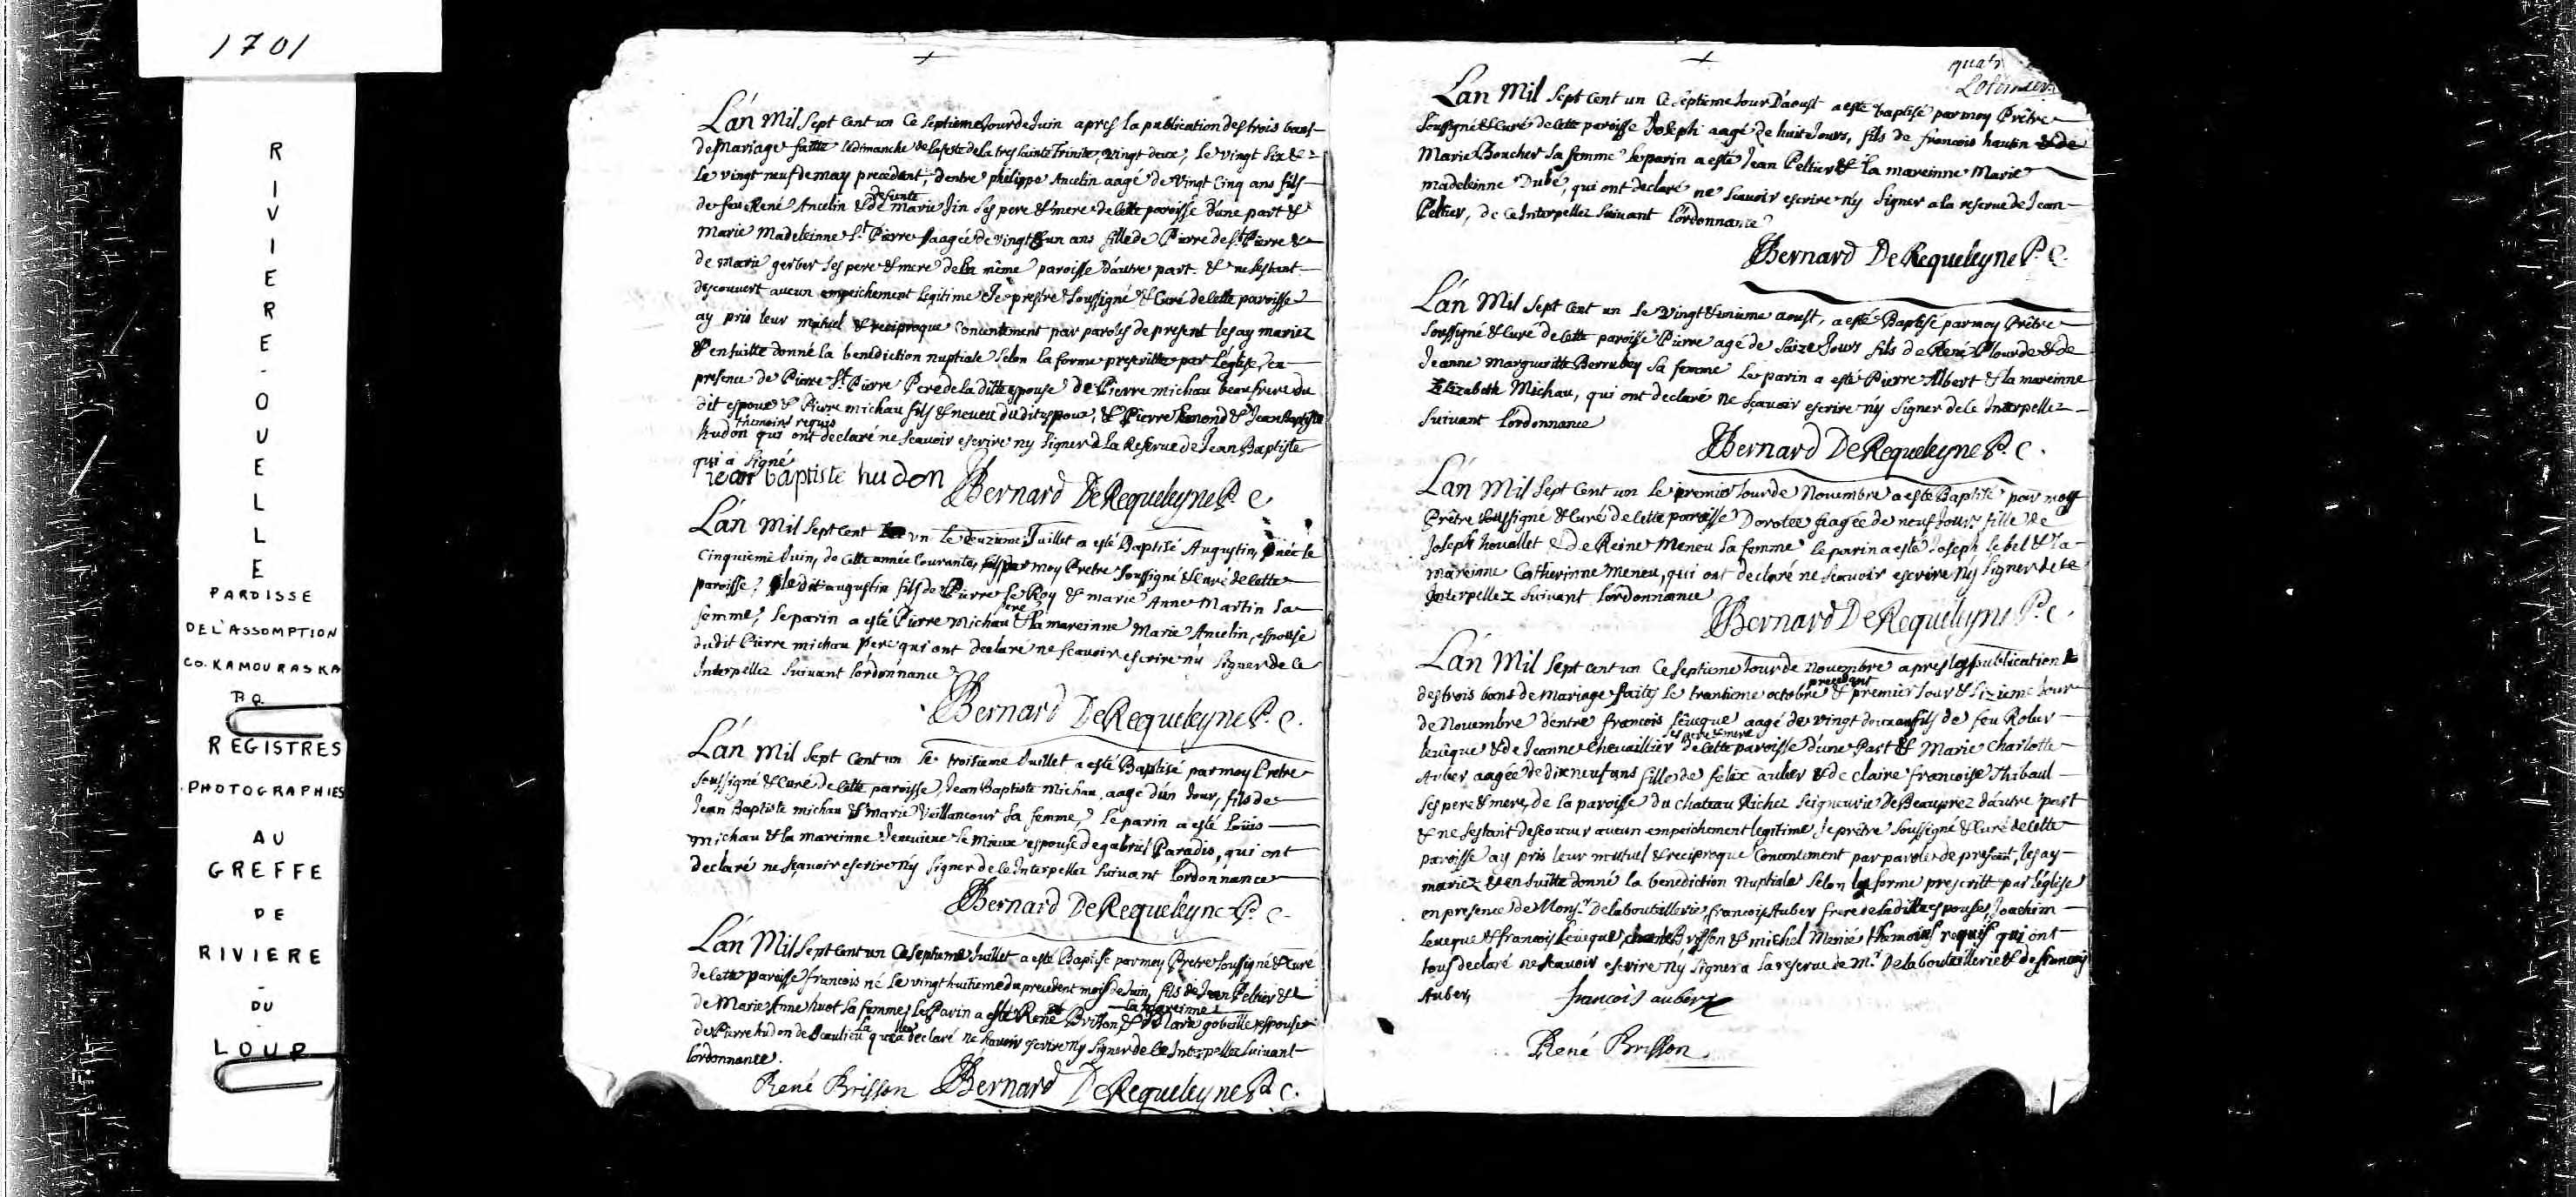 1701
RIVIERE-OUELLE
PAROISSE
DE L'ASSOMPTION
CO. KAMOURASKA
P.Q.
REGISTRES
PHOTOGRAPHIES
AU
GREFFE
DE
RIVIERE
-
DU
-
LOUP
Lán Mil Sept Cent un Ce Septieme Jour de Juin apres la publication des trois bans
de Mariage faitte le dimanche de la feste de la tres Sainte Trinite, vingt deux, le vingt six &
le vingt neuf de may precedent, dentre philippe Ancelin aagé de vingt Cinq ans fils
defunte
de feu René Ancelin & de marie Jin Ses pere & mere de Cette paroisse d'une part &
Marie Madeleinne St Pierre aagée de vingt & un ans fille de Pierre de St Pierre &
de marie gerber Ses pere & mere de la même paroisse dáutre part. & ne Sestant
descouvert aucun empeichement Legitime Je prestre Soussigné & Curé de Cette paroisse
ay pris leur mutuel & reciproque Consentement par paroles de present les ay mariez
& ensuitte donné la benediction nuptiale Selon la forme prescritte par Léglise, en
presence de Pierre St Pierre Pere de la ditte Epouse de Pierre michau beau frere du
dit espoux & Pierre michau fils & neveu du dit espoux, & Pierre Emond & Jean Baptiste
themoins requis
hudon qui ont declaré ne Scavoir escrire ny Signer à La Reserve de Jean Baptiste
qui a Signé
jean baptiste hudon Bernard DeRequeleyne P. C
Lán Mil Sept Cent un le deuzieme Juillet a esté Baptisé Augustin, né le
Cinquieme Juin, de Cette année Courante, par moy Prêtre Soussigné & Curé de Cette
paroisse, le dit augustin fils de Pierre Le Roy & marie Anne Martin Sa
pere
femme, le parin a esté Pierre Michau & la mareinne Marie Ancelin, espouse
du dit Pierre michau pere qui ont declaré ne Scavoir escrire ny Signer de ce
Interpellez Suivant lórdonnance
Bernard DeRequeleyne P. C.
Lán Mil Sept Cent un le troisieme Juillet a esté Baptisé par moy Prêtre
Soussigné & Curé de Cette paroisse, Jean Baptiste Michau aagé dún Jour, fils de
Jean Baptiste michau & marie Vaillancour Sa femme, le parin a esté Loüis
michau & la mareinne Jenevieve le Mieux espouse de gabriel Paradis, qui ont
declaré ne Sçavoir escrire ny Signer de Ce Interpellez Suivant lórdonnance
Bernard DeRequeleyne P. C
Lán Mil Sept Cent un Ce Septieme Juillet a esté Baptisé par moy Prêtre Soussigné & Curé
de Cette paroisse francois né le vingt huitieme du precedent mois de Juin, fils de Jean Peltier &
la mareinne
de Marie Anne huot Sa femme, le Parin a esté René Brisson & Marie gobeille espouse
de Pierre hudon de Beaulieu la quelle a declaré ne Scavoir escrire ny Signer de Ce Interpellez Suivant
lordonnance.
René Brisson Bernard DeRequeleyne P. C.
quatr
Lán Mil Sept Cent un Ce Septieme Jour Dáoust a esté baptisé par moy Prêtre
Soussigné & Curé de Cette paroisse Joseph aagé de huit Jours, fils de francois hautin & de
Marie Boucher Sa femme le parin a esté Jean Peltier & la mareinne Marie
madeleinne Dubé, qui ont declaré ne Scavoir escrire ny Signer a la reserve de Jean
Peltier, de Ce Interpellez Suivant lórdonnance
Bernard DeRequeleyne P. C.
Lán Mil Sept Cent un le vingt & unieme aoust, a esté Baptisé par moy Prêtre
Soussigné & Curé de Cette paroisse Pierre agé de Saize Jours fils de René Plourde & de
Jeanne Margueritte Berrubey Sa femme le parin a esté Pierre Albert & la mareinne
Elizabeth Michau, qui ont declaré ne Sçavoir escrire ny Signer de Ce Interpellez
Suivant lórdonnance
Bernard DeRequeleyne P. C.
Lán Mil Sept Cent un le premier Jour de Novembre a esté Baptisé par moy
Prêtre Soussigné & Curé de Cette paroisse Dorotee aagée de neuf Jours fille de
Joseph houallet & de Reine Meneu Sa femme le parin a esté Joseph lebel & la
mareinne Catherinne Meneu, qui ont declaré ne Scavoir escrire ny Signer de Ce
Interpellez Suivant lórdonnance
Bernard DeRequeleyne P. C.
Lán Mil Sept Cent un Ce Septieme Jour de novembre apres la publication
precedent
des trois bans de mariage faits le trantieme octobre & premier Jour & Sizieme Jour
de Novembre dentre francois léveque aagé de vingt deux ans fils de feu Rober
ses pere & mere
levêque & de Jeanne Chevaillier de Cette paroisse dúne Part & Marie Charlotte
Auber aagée de dix neuf ans fille de felix auber & de claire francoise Thibaul
Ses pere & mere, de la paroisse du chateau Richer Seigneurie de Beauprez dáutre part
& ne Sestant descouver aucun empeichement legitime, Je prêtre Soussigné & Curé de Cette
paroisse ay pris leur mutuel & reciproque Consentement par paroles de present, les ay
mariez & ensuitte donné la benediction Nuptiale Selon la forme prescritte par léglise
en presence de Monsr Delabouteillerie, francois Auber frere de la ditte espouse, Joachim
leveque & francois leveque, Brisson & michel Menié themoins requis qui ont
tous declaré ne Scavoir escrire ny Signer a la reserve de Mr Delabouteillerie & de francois
Auber,
francois auber
René Brisson